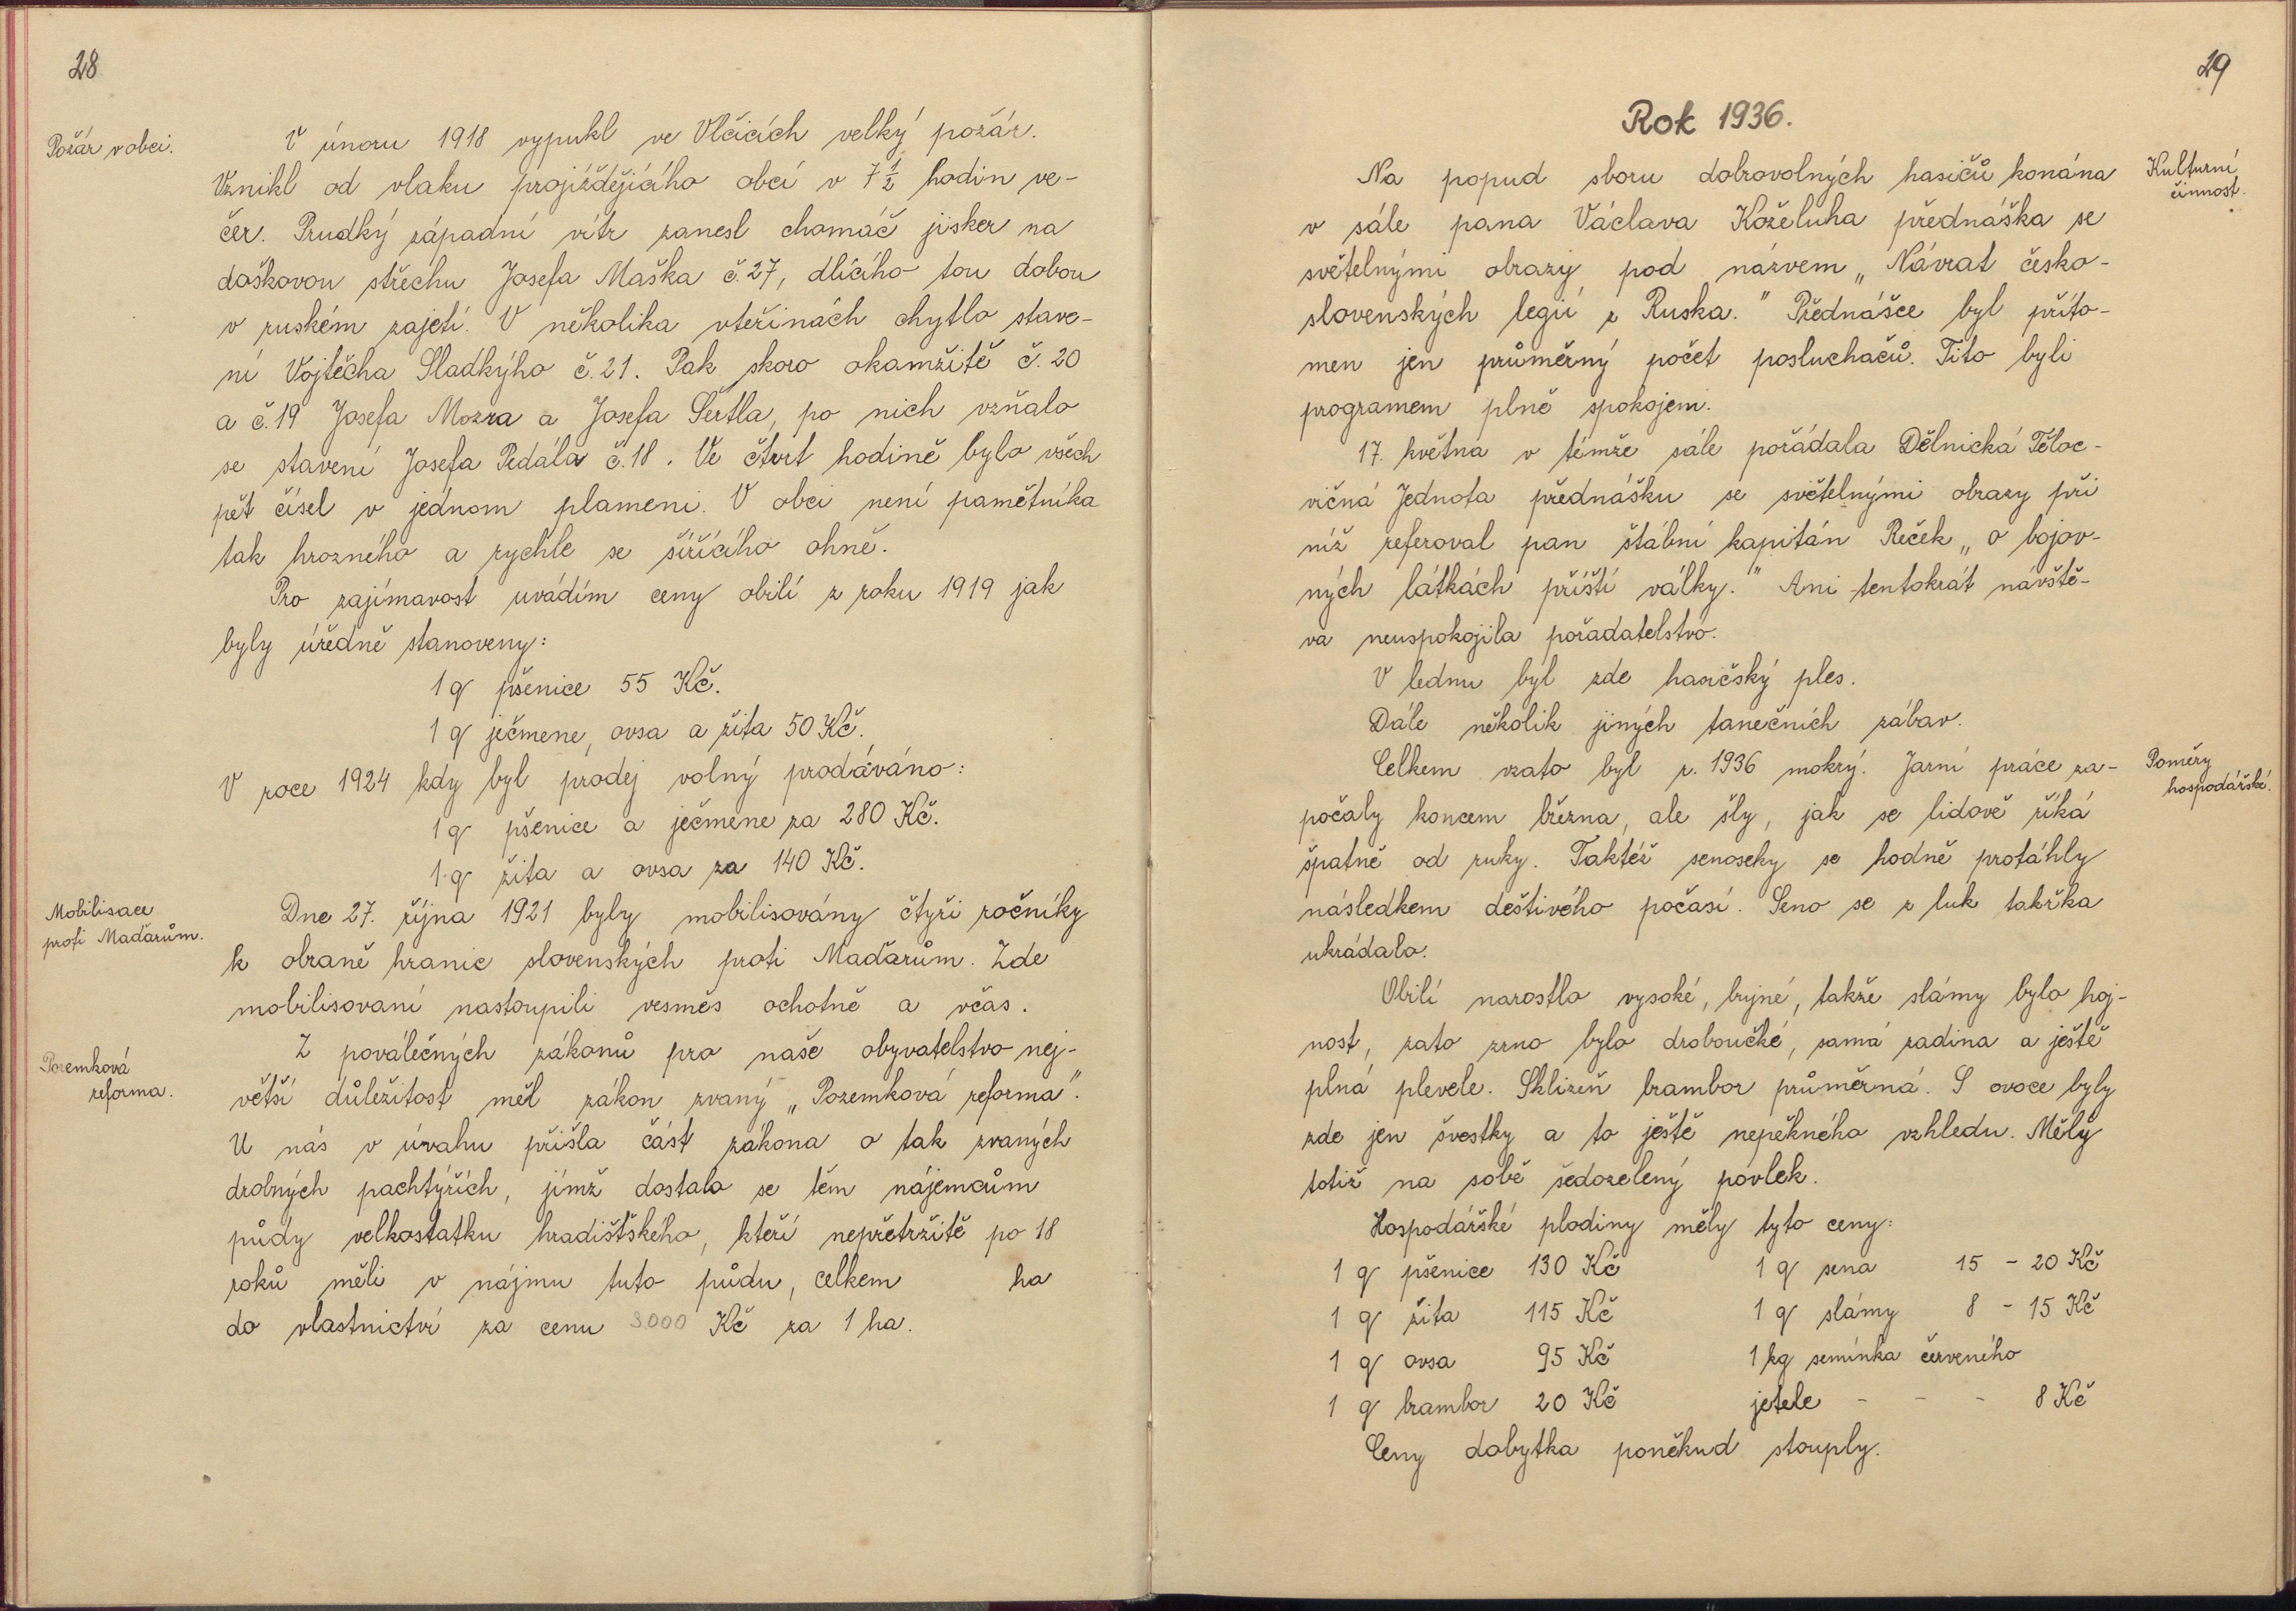 28
Požár v obci.
V únoru 1918 vypukl ve Vlčicích velký požár.
Vznikl od vlaku projíždějícího obcí v 7 1/2 hodin ve-
čer. Prudký západní vítr zanesl chomáč jisker na
doškovou střechu Josefa Maška č.27, dlícího tou dobou
v ruském zajetí. V několika vteřinách chytlo stave-
ní Vojtěcha Sladkýho č.21. Pak skoro okamžitě č.20
a č.19 Josefa Mozra a Josefa Šertla, po nich vzňalo
se stavení Josefa Pedála č.18. Ve čtvrt hodině bylo všech
pět čísel v jednom plameni. V obci není pamětníka
tak hrozného a rychle se šířícího ohně.
Pro zajímavost uvádím ceny obilí z roku 1919 jak
byly úředně stanoveny:
1 q pšenice 55 Kč.
1 q ječmene, ovsa a žita 50 Kč.
V roce 1924 kdy byl prodej volný prodáváno:
1 q pšenice a ječmene za 280 Kč.
1 q žita a ovsa za 140 Kč.
Mobilisace
proti Maďarům.
Dne 27. října 1921 byly mobilisovány čtyři ročníky
k obraně hranic slovenských proti Maďarům. Zde
mobilisovaní nastoupili vesměs ochotně a včas.
Pozemková
reforma.
Z poválečných zákonů pro naše obyvatelstvo nej-
větší důležitost měl zákon zvaný „Pozemková reforma".
U nás v úvahu přišla část zákona o tak zvaných
drobných pachtýřích, jímž dostalo se těm nájemcům
půdy velkostatku hradištského, kteří nepřetržitě po 18
roků měli v nájmu tuto půdu, celkem ha
do vlastnictví za cenu 3000 Kč za 1 ha.
29
Rok 1936.
Kulturní
činnost.
Na popud sboru dobrovolných hasičů konána
v sále pana Václava Koželuha přednáška se
světelnými obrazy pod názvem „Návrat česko-
slovenských legií z Ruska." Přednášce byl příto-
men jen průměrný počet posluchačů. Tito byli
programem plně spokojeni.
17. května v témže sále pořádala Dělnická Těloc-
vičná Jednota přednášku se světelnými obrazy při
níž referoval pan štábní kapitán Reček „o bojov-
ných látkách příští války." Ani tentokrát návště-
va neuspokojila pořadatelstvo.
V lednu byl zde hasičský ples.
Dále několik jiných tanečních zábav.
Poměry
hospodářské.
Celkem vzato byl r. 1936 mokrý. Jarní práce za-
počaly koncem března, ale šly, jak se lidově říká
špatně od ruky. Taktéž senoseky se hodně protáhly
následkem deštivého počasí. Seno se z luk takřka
ukrádalo.
Obilí narostlo vysoké, bujné, takže slámy bylo hoj-
nost, zato zrno bylo droboučké, samá zadina a ještě
plná plevele. Sklizeň brambor průměrná. S ovoce byly
zde jen švestky a to ještě nepěkného vzhledu. Měly
totiž na sobě šedozelený povlek.
Hospodářské plodiny měly tyto ceny:
1 q pšenice 130 Kč 1 q sena 15 - 20 Kč
1 q žita 115 Kč 1 q slámy 8 - 15 Kč
1 q ovsa 95 Kč 1 kg semínka červeného
1 q brambor 20 Kč jetele - - - 8 Kč
Ceny dobytka poněkud stouply.